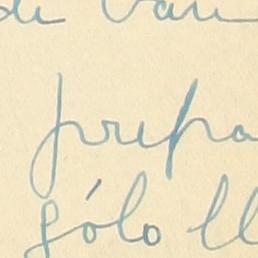 de van
prepa
sólo ll